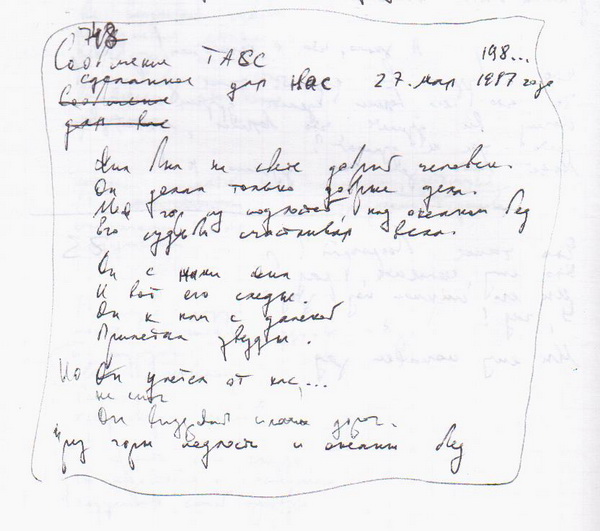 748
Сообщение ТАСС 198...
сделанное для нас 27 мая 1987 года
сообщение
для вас
Жил был на свете добрый человек.
Он делал только добрые дела.
Меж гор из подлостей, над океаном бед
Его судьба счастливая вела.
Он с нами жил
И вот его следы.
Он к нам с далекой
Прилетал звезды.
Но Он улетел от нас,...
не
Он видел много дорог.
Чрез горы подлость и океаны бед